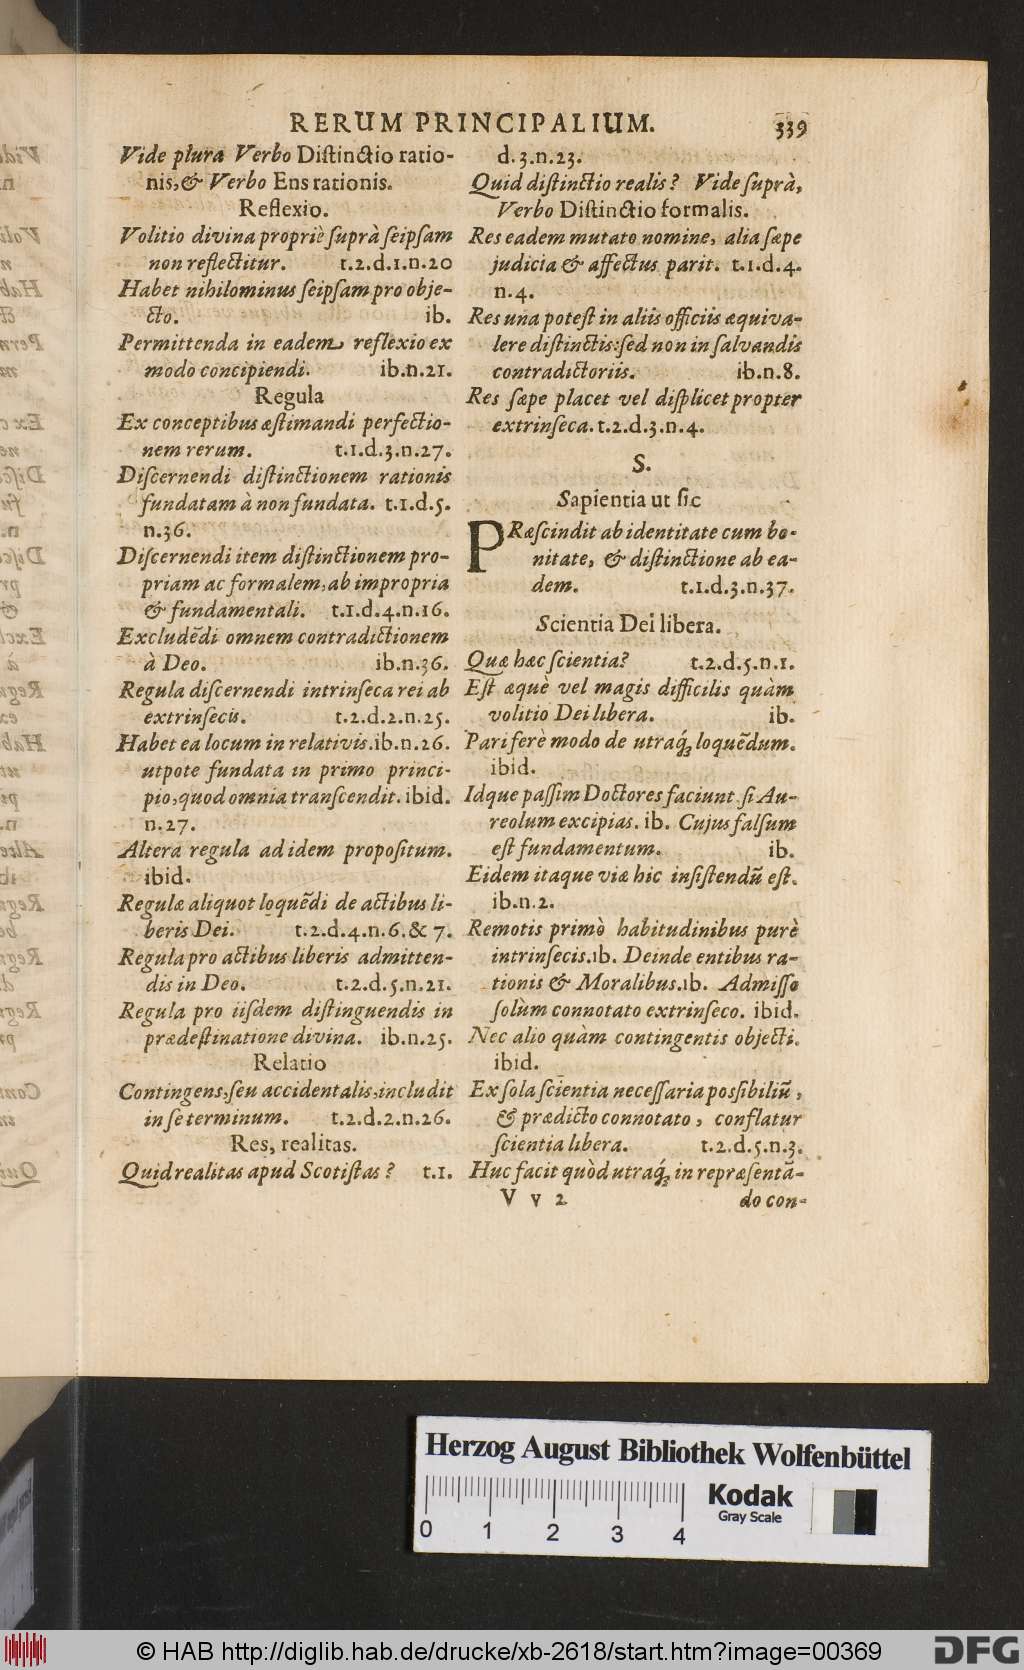 RERUM PRINCIPALIUM. 339
Vide plura Verbo Distinctio ratio-
nis, & Verbo Ens rationis.
Reflexio.
Volitio divina propriè suprà seipsam
non reflectitur. t.2.d.1.n.20
Habet nihilominus seipsam pro obje-
cto. ib.
Permittenda in eadem reflexio ex
modo concipiendi. ib.n.21.
Regula
Ex conceptibus æstimandi perfectio-
nem rerum. t.1.d.3.n.27.
Discernendi distinctionem rationis
fundatam à non fundata. t.1.d.5.
n.36.
Discernendi item distinctionem pro-
priam ac formalem, ab impropria
& fundamentali. t.1.d.4.n.16.
Excludẽdi omnem contradictionem
à Deo. ib.n.36.
Regula discernendi intrinseca rei ab
extrinsecis. t.2.d.2.n.25.
Habet ea locum in relativis. ib.n.26.
utpote fundata in primo princi-
pio, quod omnia transcendit. ibid.
n.27.
Altera regula ad idem propositum.
ibid.
Regulæ aliquot loquẽdi de actibus li-
beris Dei. t.2.d.4.n.6.& 7.
Regula pro actibus liberis admitten-
dis in Deo. t.2.d.5.n.21.
Regula pro iisdem distinguendis in
prædestinatione divina. ib.n.25.
Relatio
Contingens, seu accidentalis, includit
in se terminum. t.2.d.2.n.26.
Res, realitas.
Quid realitas apud Scotistas? t.1.
d.3.n.23.
Quid distinctio realis? Vide suprà,
Verbo Distinctio formalis.
Res eadem mutato nomine, alia sæpe
judicia & affectus parit. t.1.d.4.
n.4.
Res una potest in aliis officiis æquiva-
lere distinctis: sed non in salvandis
contradictoriis. ib.n.8.
Res sæpe placet vel displicet propter
extrinseca. t.2.d.3.n.4.
S.
Sapientia ut sic
PRæscindit ab identitate cum bo-
nitate, & distinctione ab ea-
dem. t.1.d.3.n.37.
Scientia Dei libera.
Quæ hæc scientia? t.2.d.5.n.1.
Est æquè vel magis difficilis quàm
volitio Dei libera. ib.
Pari ferè modo de utraq́ꝫ loquẽdum.
ibid.
Idque passim Doctores faciunt si Au-
reolum excipias. ib. Cujus falsum
est fundamentum. ib.
Eidem itaque viæ hic insistendũ est.
ib.n.2.
Remotis primò habitudinibus purè
intrinsecis. ib. Deinde entibus ra-
tionis & Moralibus. ib. Admisso
solùm connotato extrinseco. ibid.
Nec alio quàm contingentis objecti.
ibid.
Ex sola scientia necessaria possibiliũ,
& prædicto connotato, conflatur
scientia libera. t.2.d.5.n.3.
Huc facit quòd utraq́ꝫ in repræsentã-
V v 2 do con-
Herzog August Bibliothek Wolfenbüttel
0 1 2 3 4
Kodak
Gray Scale
© HAB http://diglib.hab.de/drucke/xb-2618/start.htm?image=00369
DFG